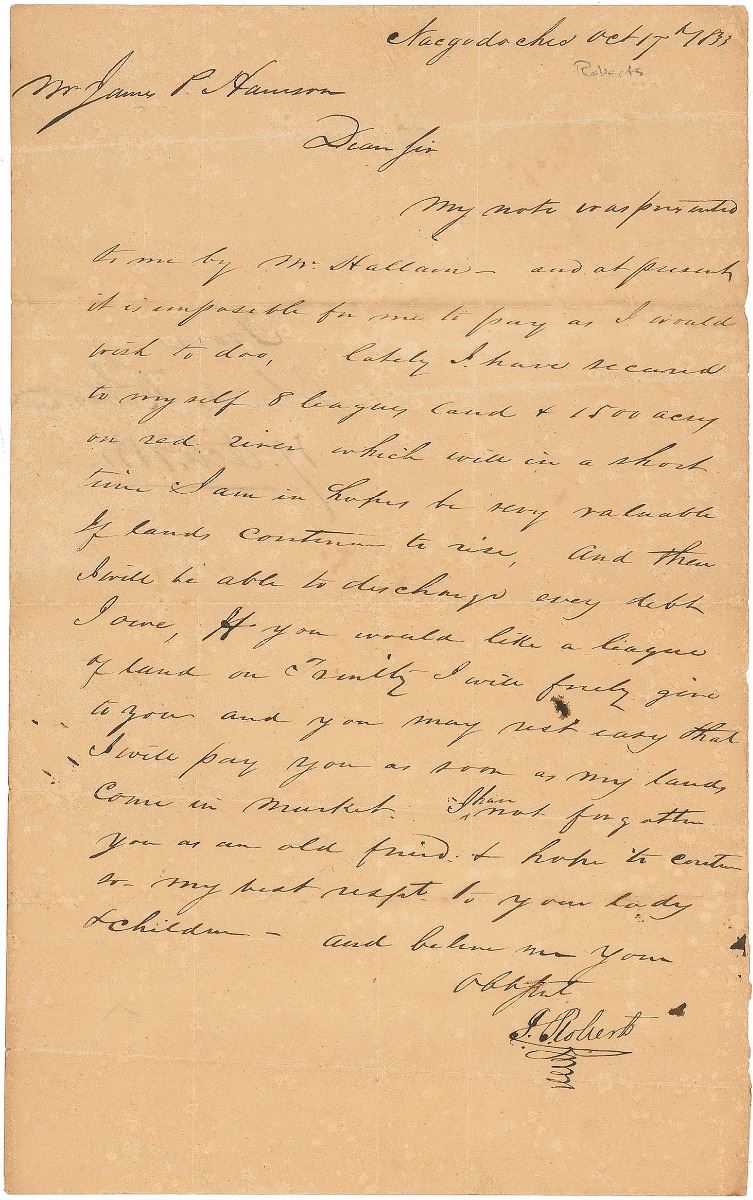 Nacgodoches Oct 17th 1833
Roberts
Mr James P. Harrison
Dear Sir
My note was presented
to me by Mr. Hallam - and at present
it is imposible for me to pay as I would
wish to doo, lately I have secured
to myself 8 leagues land & 1500 acres
on red river which will in a short
time I am in hopes be very valuable
If lands continue to rise, And then
I will be able to discharge every debt
I owe, If you would like a league
of land on Trinity I will freely give
to you and you may rest easy that
I will pay you as soon as my lands
Come in market. I have not forgotten
you as an old friend. & hope to continue
so - my best respt. to your lady
& children - and believe me your
Obt
J. Roberts